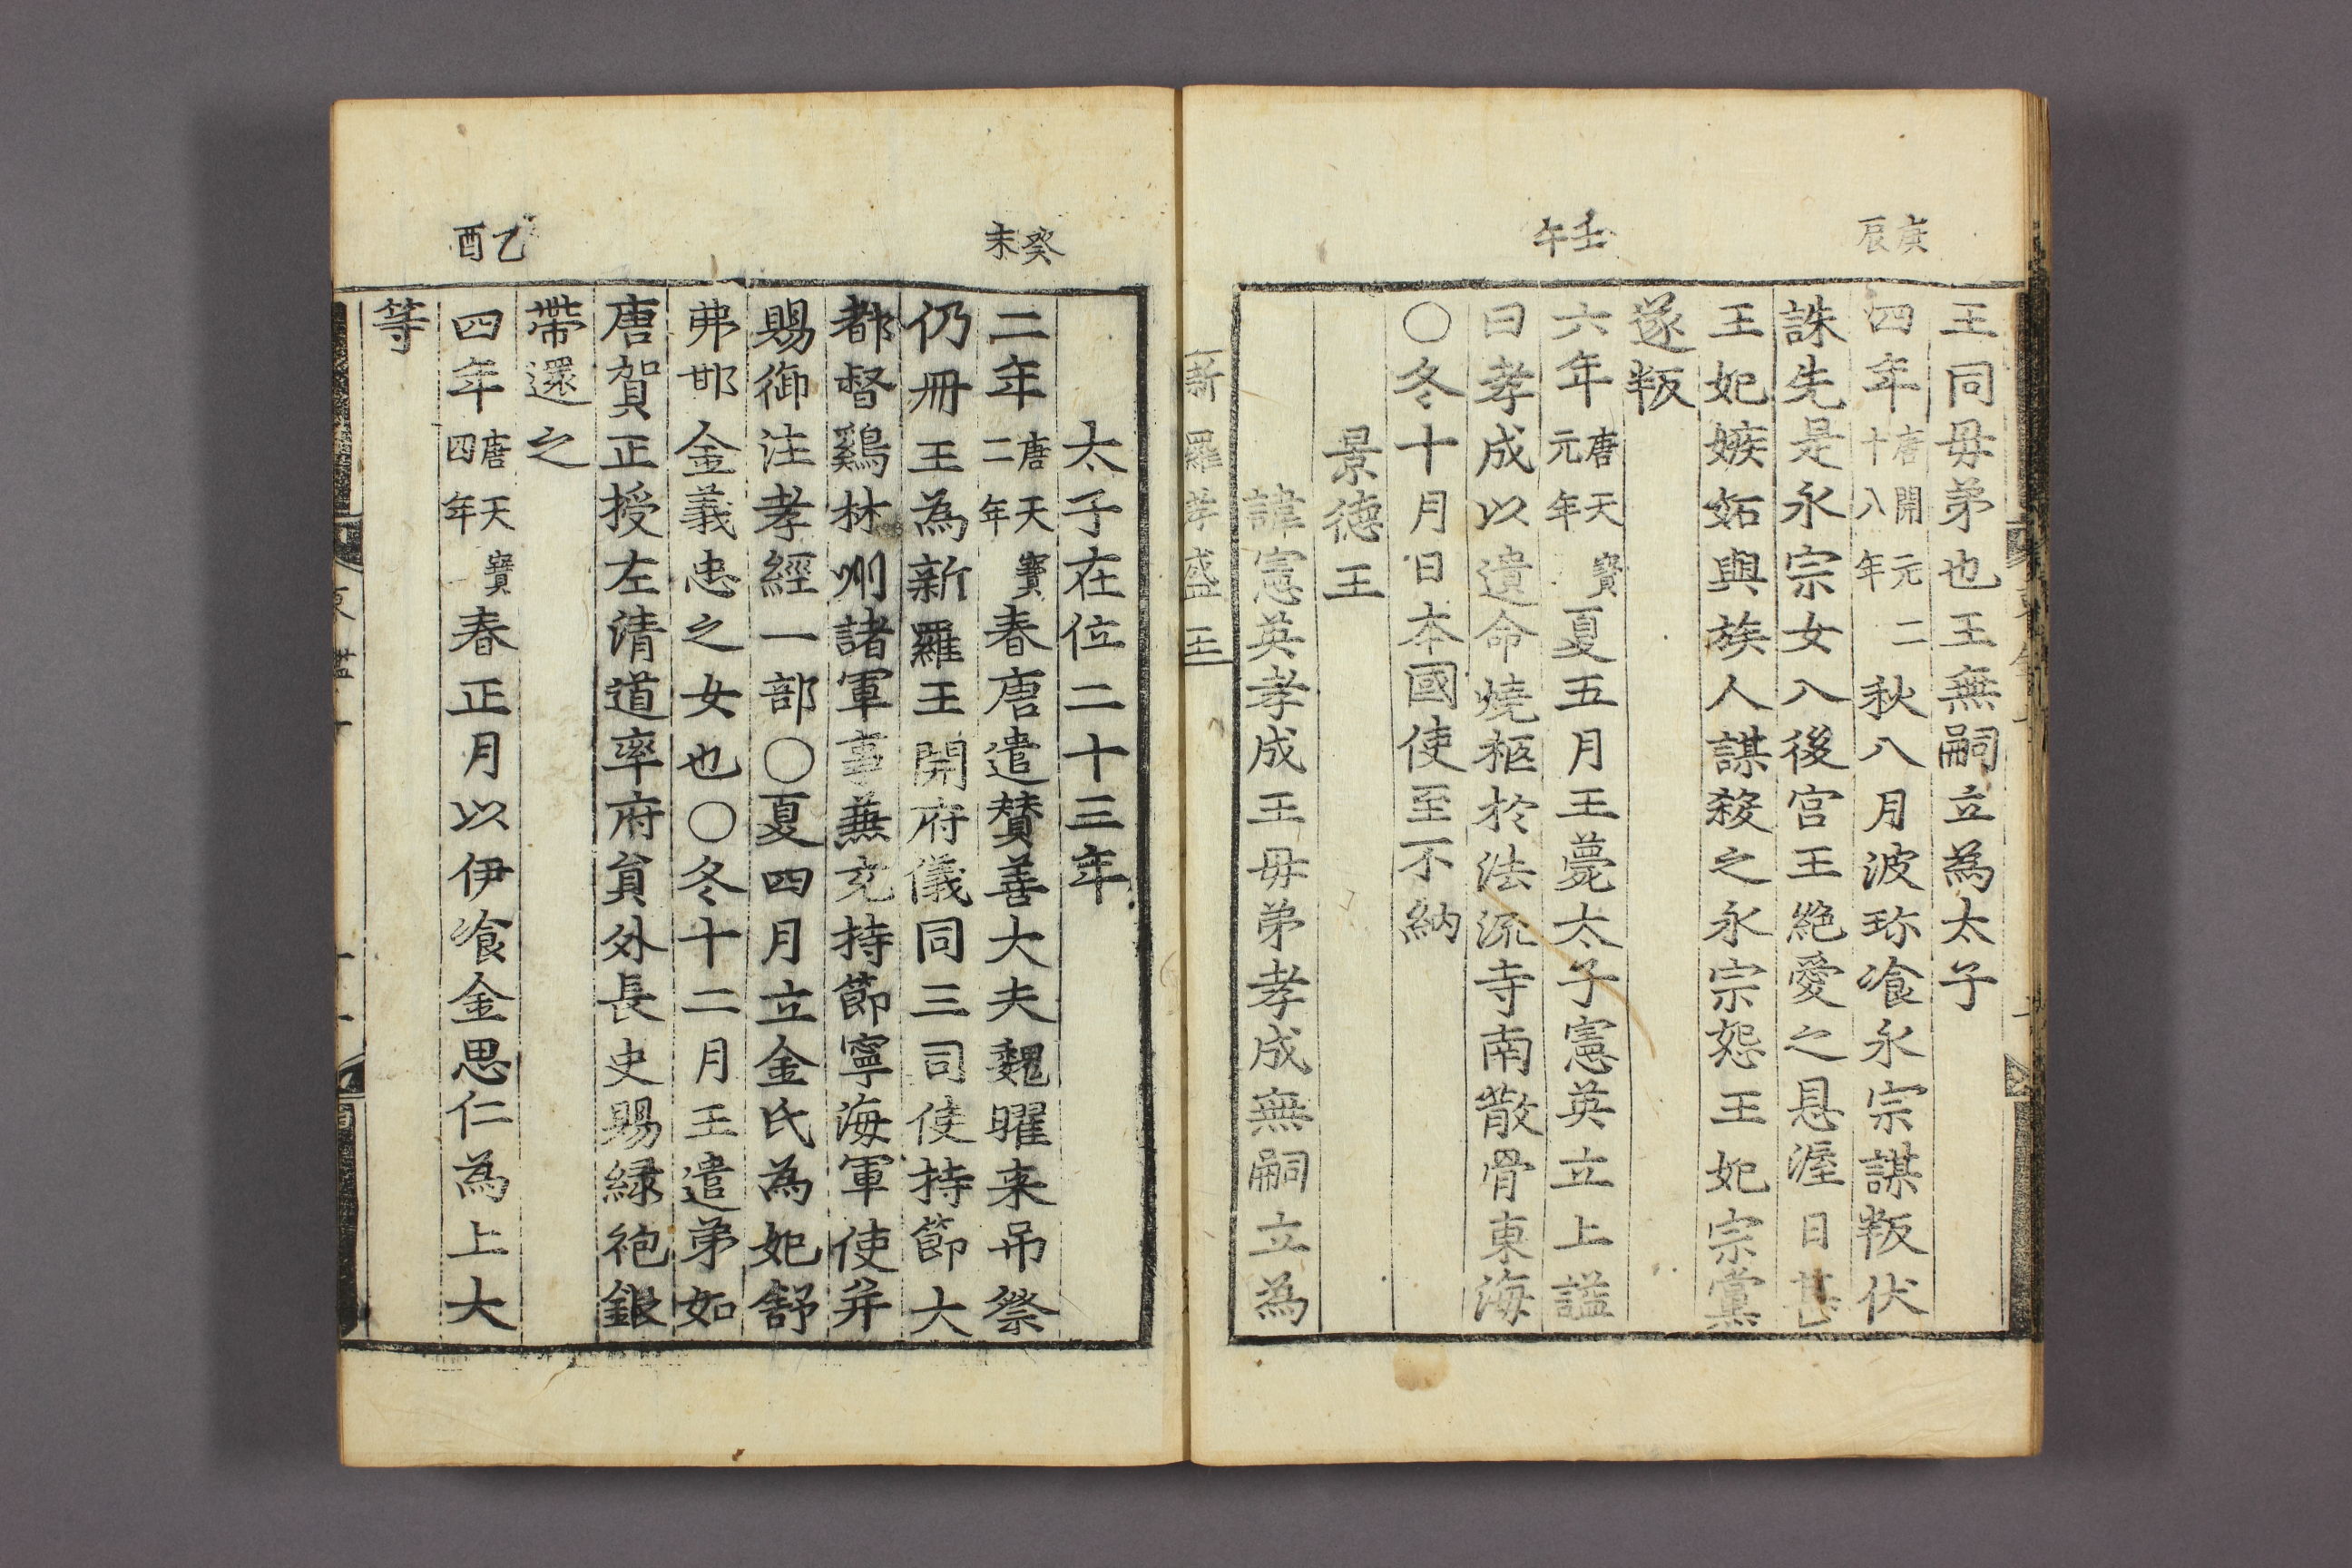 庚辰
王同毋弟也王無嗣立為太子
四年唐開元二十八年秋八月波珎飡永宗謀叛伏
誅先是永宗女入後宫王絶愛之恩渥日甚
王妃嫉妬與族人謀殺之永宗怨王妃宗黨
遂叛
壬午
六年唐天寳元年夏五月王薨太子憲英立上謚
曰孝成以遺命燒柩於法流寺南散骨東海
〇冬十月日本國使至不納
景德王
諱憲英孝成王毋弟孝成無嗣立為
新羅孝成王
太子在位二十三年
癸未
二年唐天寳二年春唐遣賛善大夫魏曜来吊祭
仍冊王為新羅王開府儀同三司使持節大
都督鷄林州諸軍事兼充持節寧海軍使并
賜御注孝經一部〇夏四月立金氏為妃舒
弗邯金義忠之女也〇冬十二月王遣弟如
唐賀正授左清道率府員外長史賜緑袍銀
帶還之
乙酉
四年唐天寳四年春正月以伊飡金思仁為上大
等